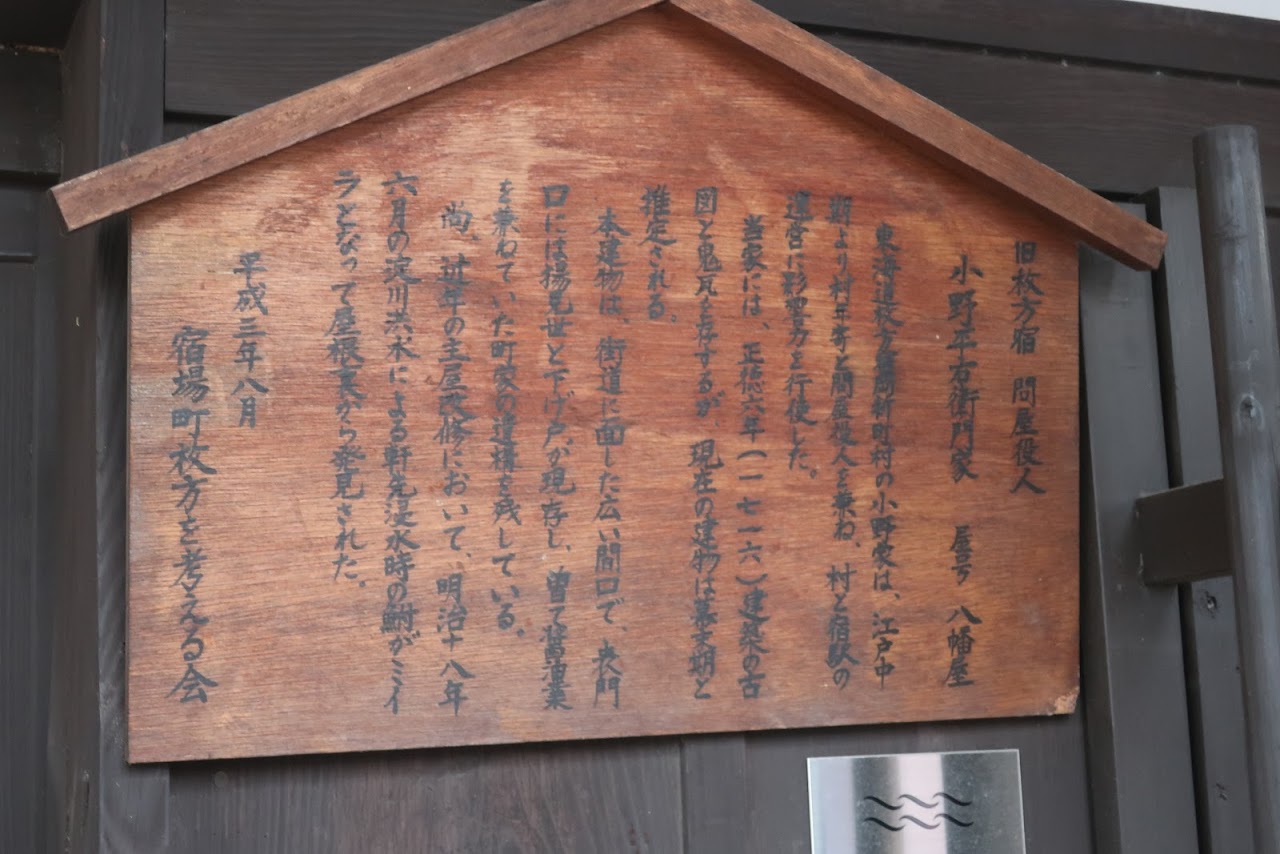 旧枚方宿 問屋役人
小野平右衛門家 屋号 八幡屋
東海道枚方宿岡新町村の小野家は、江戸中
期より村年寄と問屋役人を兼ね、村と宿駅の
運営に影響力を行使した。
当家には、正徳六年(一七一六)建築の古
図と鬼瓦を存するが、現在の建物は幕末期と
推定される。
本建物は、街道に面した広い間口で、表門
口には揚見世と下げ戸が現存し、曽て醤油業
を兼ねていた町家の遺構を残している。
尚、近年の主屋改修において、明治十八年
六月の淀川洪水による軒先浸水時の鮒がミイ
ラとなって屋根裏から発見された。
平成三年八月
宿場町枚方を考える会